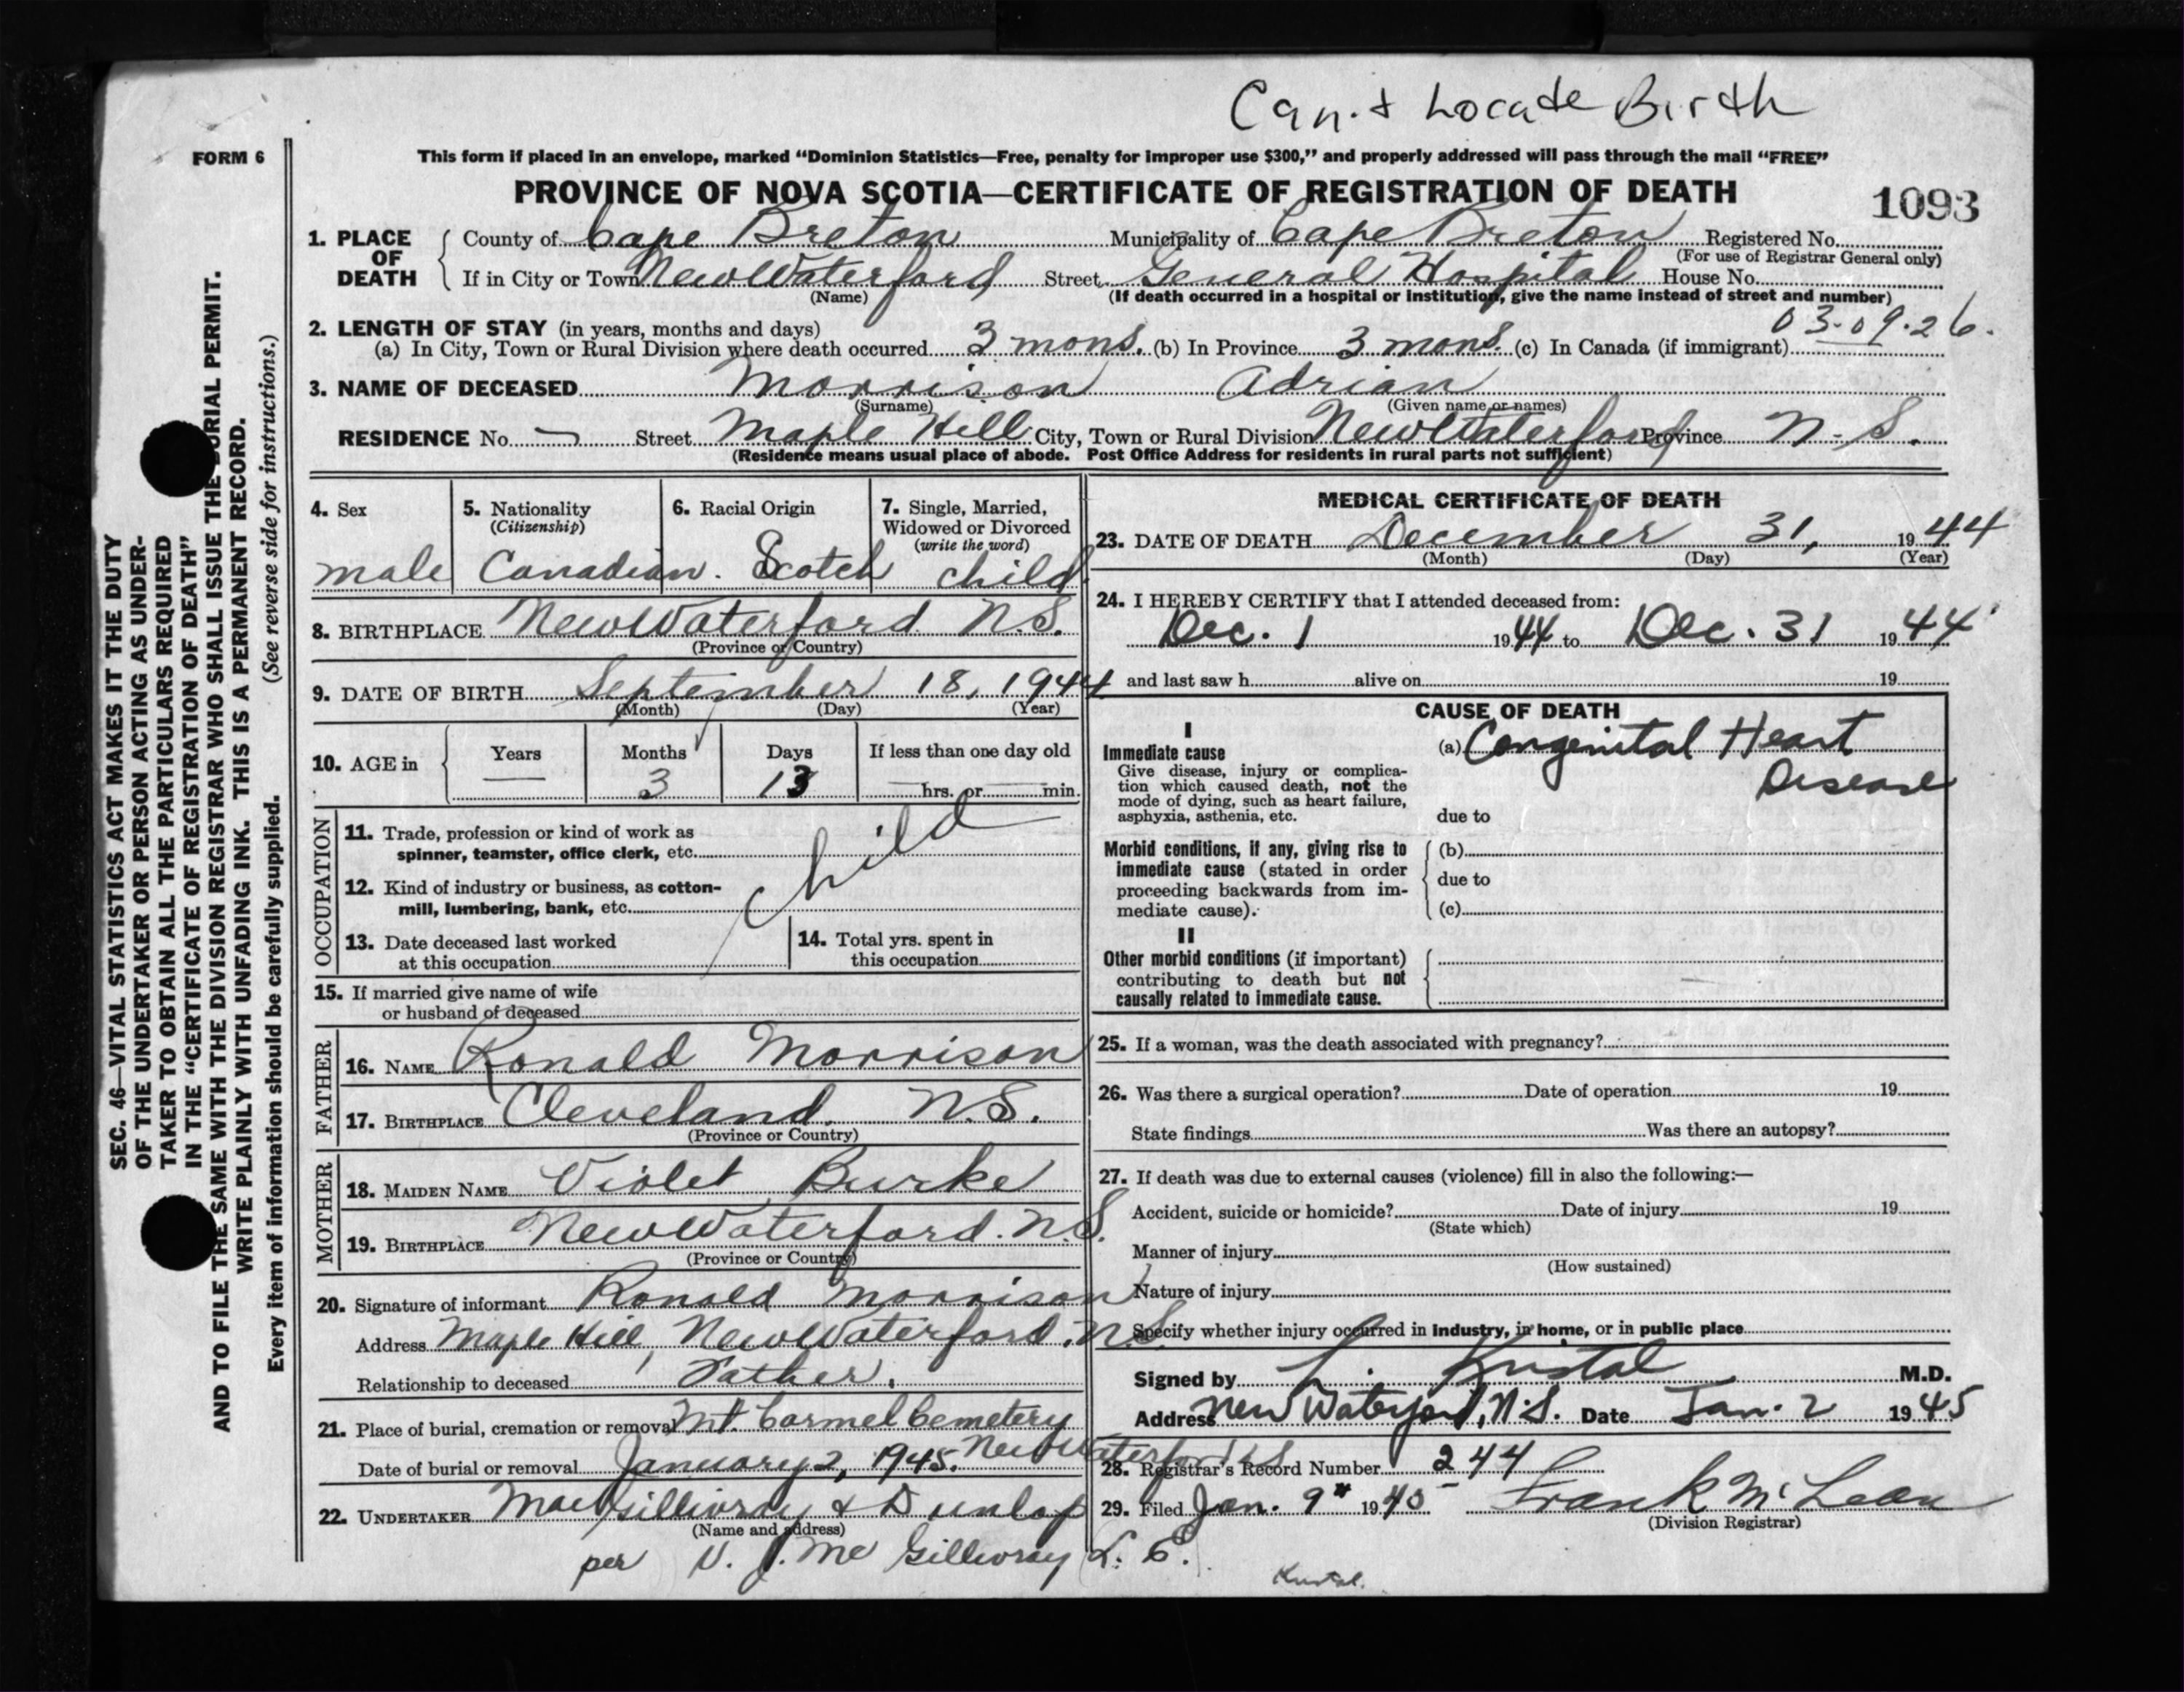 Can't Locate Birth
FORM 6
This form if placed in an envelope, marked "Dominion Statistics—Free, penalty for improper use $300," and properly addressed will pass through the mail "FREE"
PROVINCE OF NOVA SCOTIA—CERTIFICATE OF REGISTRATION OF DEATH
1093
1. PLACE OF DEATH County of Cape Breton Municipality of Cape Breton Registered No.
(For use of Registrar General only)
If in City or Town New Waterford Street General Hospital House No.
(Name) (If death occurred in a hospital or institution, give the name instead of street and number)
2. LENGTH OF STAY (in years, months and days) 03.09.26.
(a) In City, Town or Rural Division where death occurred 3 mons. (b) In Province 3 mons. (c) In Canada (if immigrant)
3. NAME OF DECEASED Morrison Adrian
(Surname) (Given name or names)
RESIDENCE No. — Street Maple Hill City, Town or Rural Division New Waterford Province N.S.
(Residence means usual place of abode. Post Office Address for residents in rural parts not sufficient)
4. Sex 5. Nationality 6. Racial Origin 7. Single, Married,
(Citizenship) Widowed or Divorced
(write the word)
male Canadian. Scotch child
8. BIRTHPLACE New Waterford N.S.
(Province or Country)
9. DATE OF BIRTH September 18, 1944
(Month) (Day) (Year)
10. AGE in Years Months Days If less than one day old
— 3 13 hrs. or min.
OCCUPATION
11. Trade, profession or kind of work as
spinner, teamster, office clerk, etc. child
12. Kind of industry or business, as cotton-
mill, lumbering, bank, etc.
13. Date deceased last worked 14. Total yrs. spent in
at this occupation this occupation
15. If married give name of wife
or husband of deceased
FATHER
16. NAME Ronald Morrison
17. BIRTHPLACE Cleveland. N.S.
(Province or Country)
MOTHER
18. MAIDEN NAME Violet Burke
19. BIRTHPLACE New Waterford. N.S.
(Province or Country)
20. Signature of informant Ronald Morrison
Address Maple Hill, New Waterford. N.S.
Relationship to deceased Father.
21. Place of burial, cremation or removal Mt. Carmel Cemetery
New Waterford N S
Date of burial or removal January 2, 1945.
22. UNDERTAKER MacGillivray & Dunlap
(Name and address)
per McGillivray L. E.
MEDICAL CERTIFICATE OF DEATH
23. DATE OF DEATH December 31, 1944
(Month) (Day) (Year)
24. I HEREBY CERTIFY that I attended deceased from:
Dec. 1 1944 to Dec. 31 1944
and last saw h alive on 19
CAUSE OF DEATH
I
Immediate cause (a) Congenital Heart
Disease
Give disease, injury or complica-
tion which caused death, not the
mode of dying, such as heart failure,
asphyxia, asthenia, etc. due to
Morbid conditions, if any, giving rise to (b)
immediate cause (stated in order
proceeding backwards from im- due to
mediate cause). (c)
II
Other morbid conditions (if important)
contributing to death but not
causally related to immediate cause.
25. If a woman, was the death associated with pregnancy?
26. Was there a surgical operation? Date of operation 19
State findings Was there an autopsy?
27. If death was due to external causes (violence) fill in also the following:—
Accident, suicide or homicide? Date of injury 19
(State which)
Manner of injury
(How sustained)
Nature of injury
Specify whether injury occurred in industry, in home, or in public place
Signed by L. Kristal M.D.
Address New Waterford, N.S. Date Jan. 2 1945
28. Registrar's Record Number 244
29. Filed Jan. 9th 1945 Frank McLean
(Division Registrar)
Kristal.
SEC. 46—VITAL STATISTICS ACT MAKES IT THE DUTY
OF THE UNDERTAKER OR PERSON ACTING AS UNDER-
TAKER TO OBTAIN ALL THE PARTICULARS REQUIRED
IN THE "CERTIFICATE OF REGISTRATION OF DEATH"
AND TO FILE THE SAME WITH THE DIVISION REGISTRAR WHO SHALL ISSUE THE BURIAL PERMIT.
WRITE PLAINLY WITH UNFADING INK. THIS IS A PERMANENT RECORD.
Every item of information should be carefully supplied. (See reverse side for instructions.)